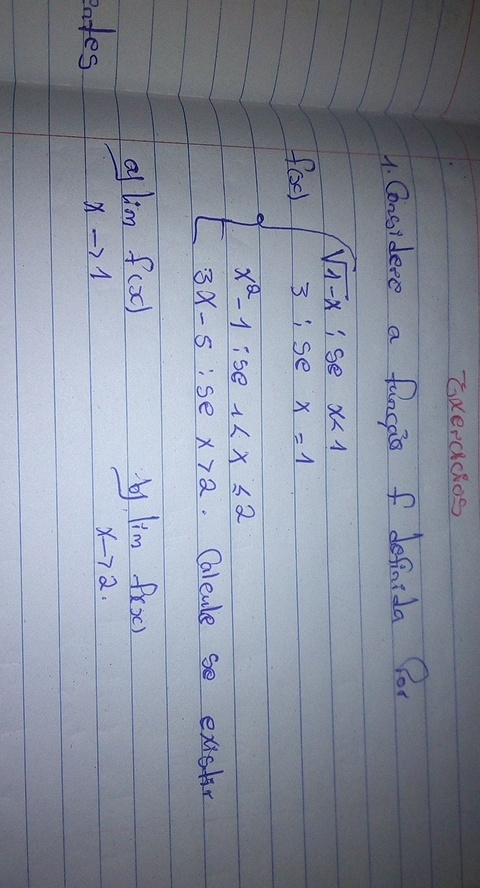 Exercicios
1. Considere a função f definida Por
√1-x ; se x<1
f(x) 3 ; se x = 1
x² - 1 ; se 1 < x ≤ 2
3x - 5 ; se x > 2. Calcule se existir
a) lim f(x) b) lim f(x)
x → 1 x → 2.